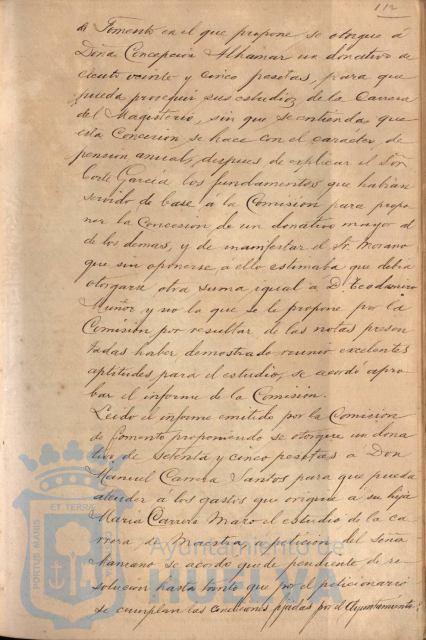 112
de Fomento en el que propone se otorgue á
Doña Concepción Alhamar un donativo de
ciento veinte y cinco pesetas, para que
pueda proseguir sus estudios de la Carrera
del Magisterio, sin que se entienda que
esta Concesion se hace con el carácter de
pension anual, despues de explicar el Señor
Corte García los fundamentos que habian
servido de base á la Comision para propo
ner la Concesion de un donativo mayor al
de los demas, y de manifestar el Sr. Morano
que sin oponerse á ello estimaba que debia
otorgara otra suma igual á D. Teodomiro
Muñoz y no la que se le propone por la
Comision por resultar de las notas presen
tadas haber demostrado reunir excelentes
aptitudes para el estudio, se acordó apro
bar el informe de la Comision.
Leido el informe emitido por la Comision
de fomento proponiendo se otorgue un dona
tivo de setenta y cinco pesetas a Don
Manuel Santos para que pueda
atender á los gastos que origine a su hija
María el estudio de la ca
rrera de Maestra, a peticion del Señor
se acordó quede pendiente de re
solucion hasta tanto que por el peticionario
se cumplan las condiciones fijadas por el Ayuntamiento
PORTUS MARIS
ET TERRAE
Ayuntamiento de
HUELVA